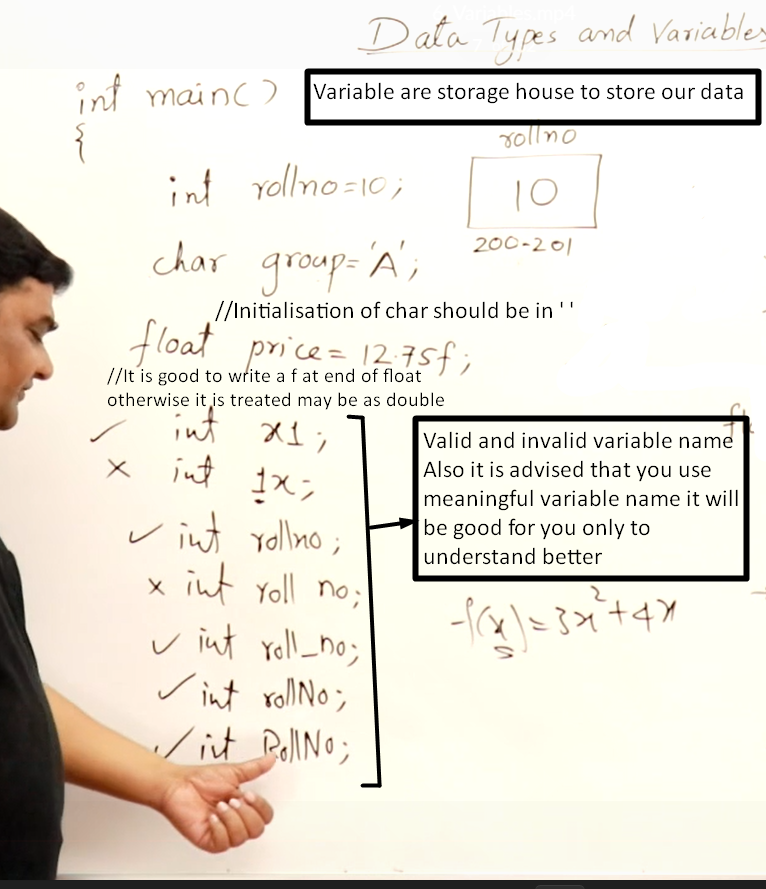 Data Types and Variables
int main()
Variable are storage house to store our data
{
rollno
int rollno=10;
10
200-201
char group='A';
//Initialisation of char should be in ' '
float price=12.75f;
//It is good to write a f at end of float
otherwise it is treated may be as double
✓ int x1;
x int 1x;
✓ int rollno;
x int roll no;
✓ int roll_no;
✓ int rollNo;
✓ int RollNo;
Valid and invalid variable name
Also it is advised that you use
meaningful variable name it will
be good for you only to
understand better
f(x)=3x²+4x
5